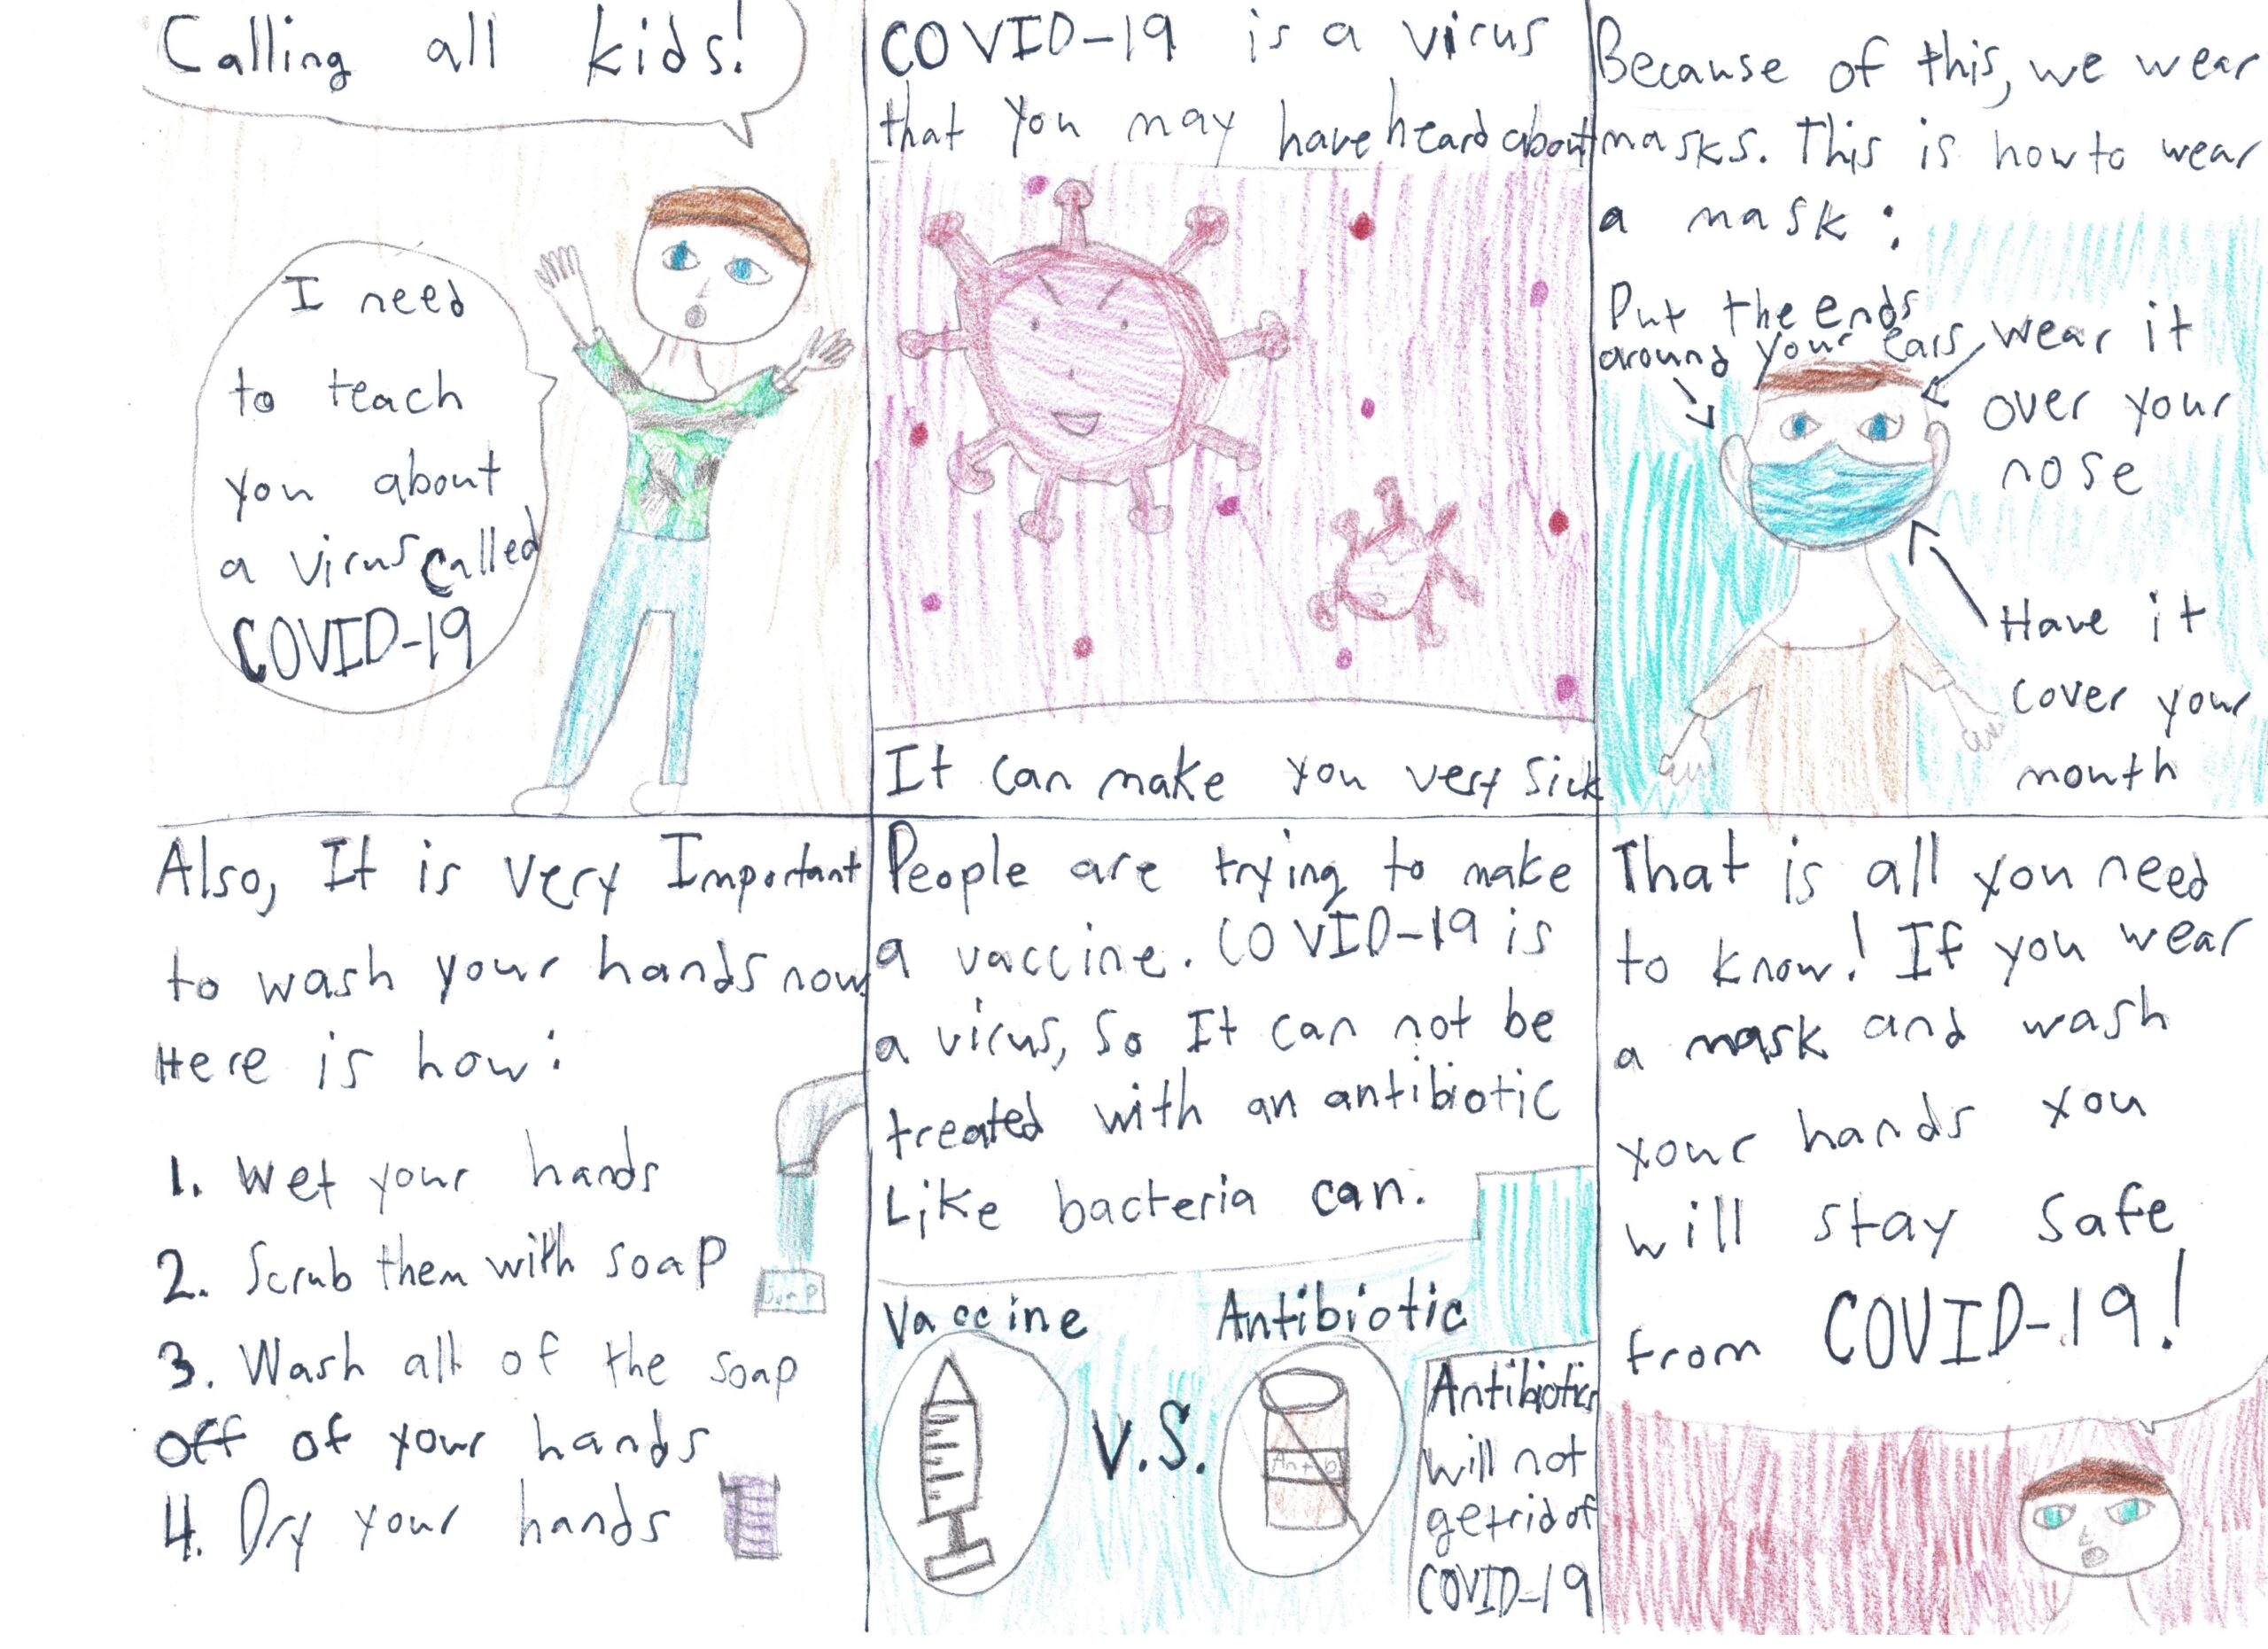 Calling all kids!
I need
to teach
you about
a virus called
COVID-19
COVID-19 is a virus
that you may have heard about
It can make you very sick
Because of this, we wear
masks. This is how to wear
a mask:
Put the ends
around your ears
wear it
over your
nose
Have it
cover your
mouth
Also, It is very Important
to wash your hands now.
Here is how:
1. Wet your hands
2. Scrub them with soap
3. Wash all of the soap
off of your hands
4. Dry your hands
Soap
People are trying to make
a vaccine. COVID-19 is
a virus, So It can not be
treated with an antibiotic
Like bacteria can.
Vaccine
V.S.
Antibiotic
Antib
Antibiotics
will not
get rid of
COVID-19
That is all you need
to know! If you wear
a mask and wash
your hands you
will stay safe
from COVID-19!